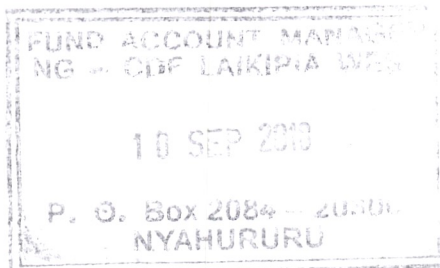 FUND ACCOUNT MANAGER
NG - CDF LAIKIPIA WEST
SEP
P. O. Box 2084 -
NYAHURURU